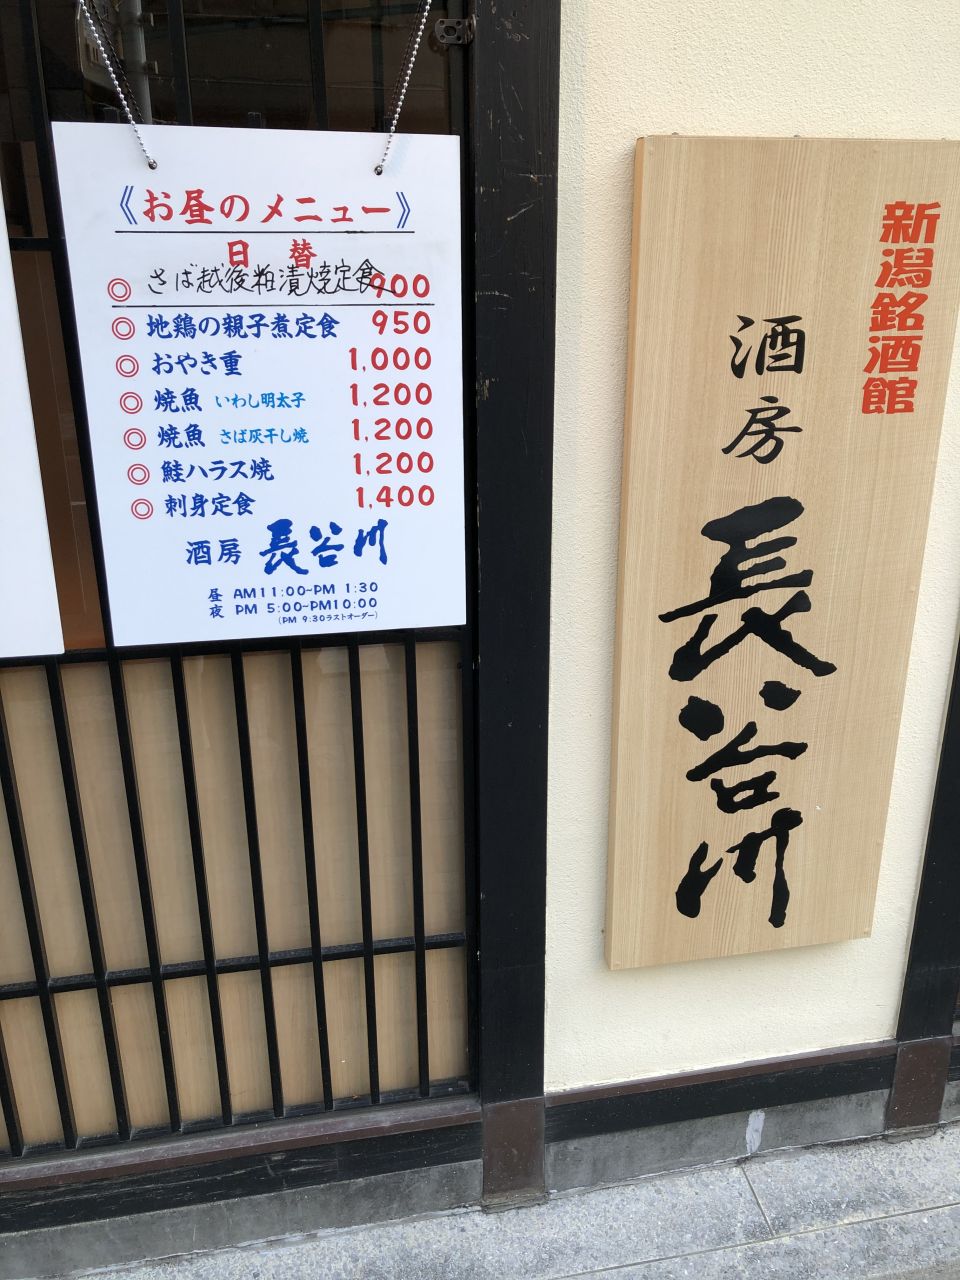 《お昼のメニュー》
日替
◎ さば越後粕漬焼定食 900
◎ 地鶏の親子煮定食 950
◎ おやき重 1,000
◎ 焼魚 いわし明太子 1,200
◎ 焼魚 さば灰干し焼 1,200
◎ 鮭ハラス焼 1,200
◎ 刺身定食 1,400
酒房 長谷川
昼 AM11:00~PM 1:30
夜 PM 5:00~PM10:00
(PM 9:30ラストオーダー)
新潟銘酒館
酒房 長谷川